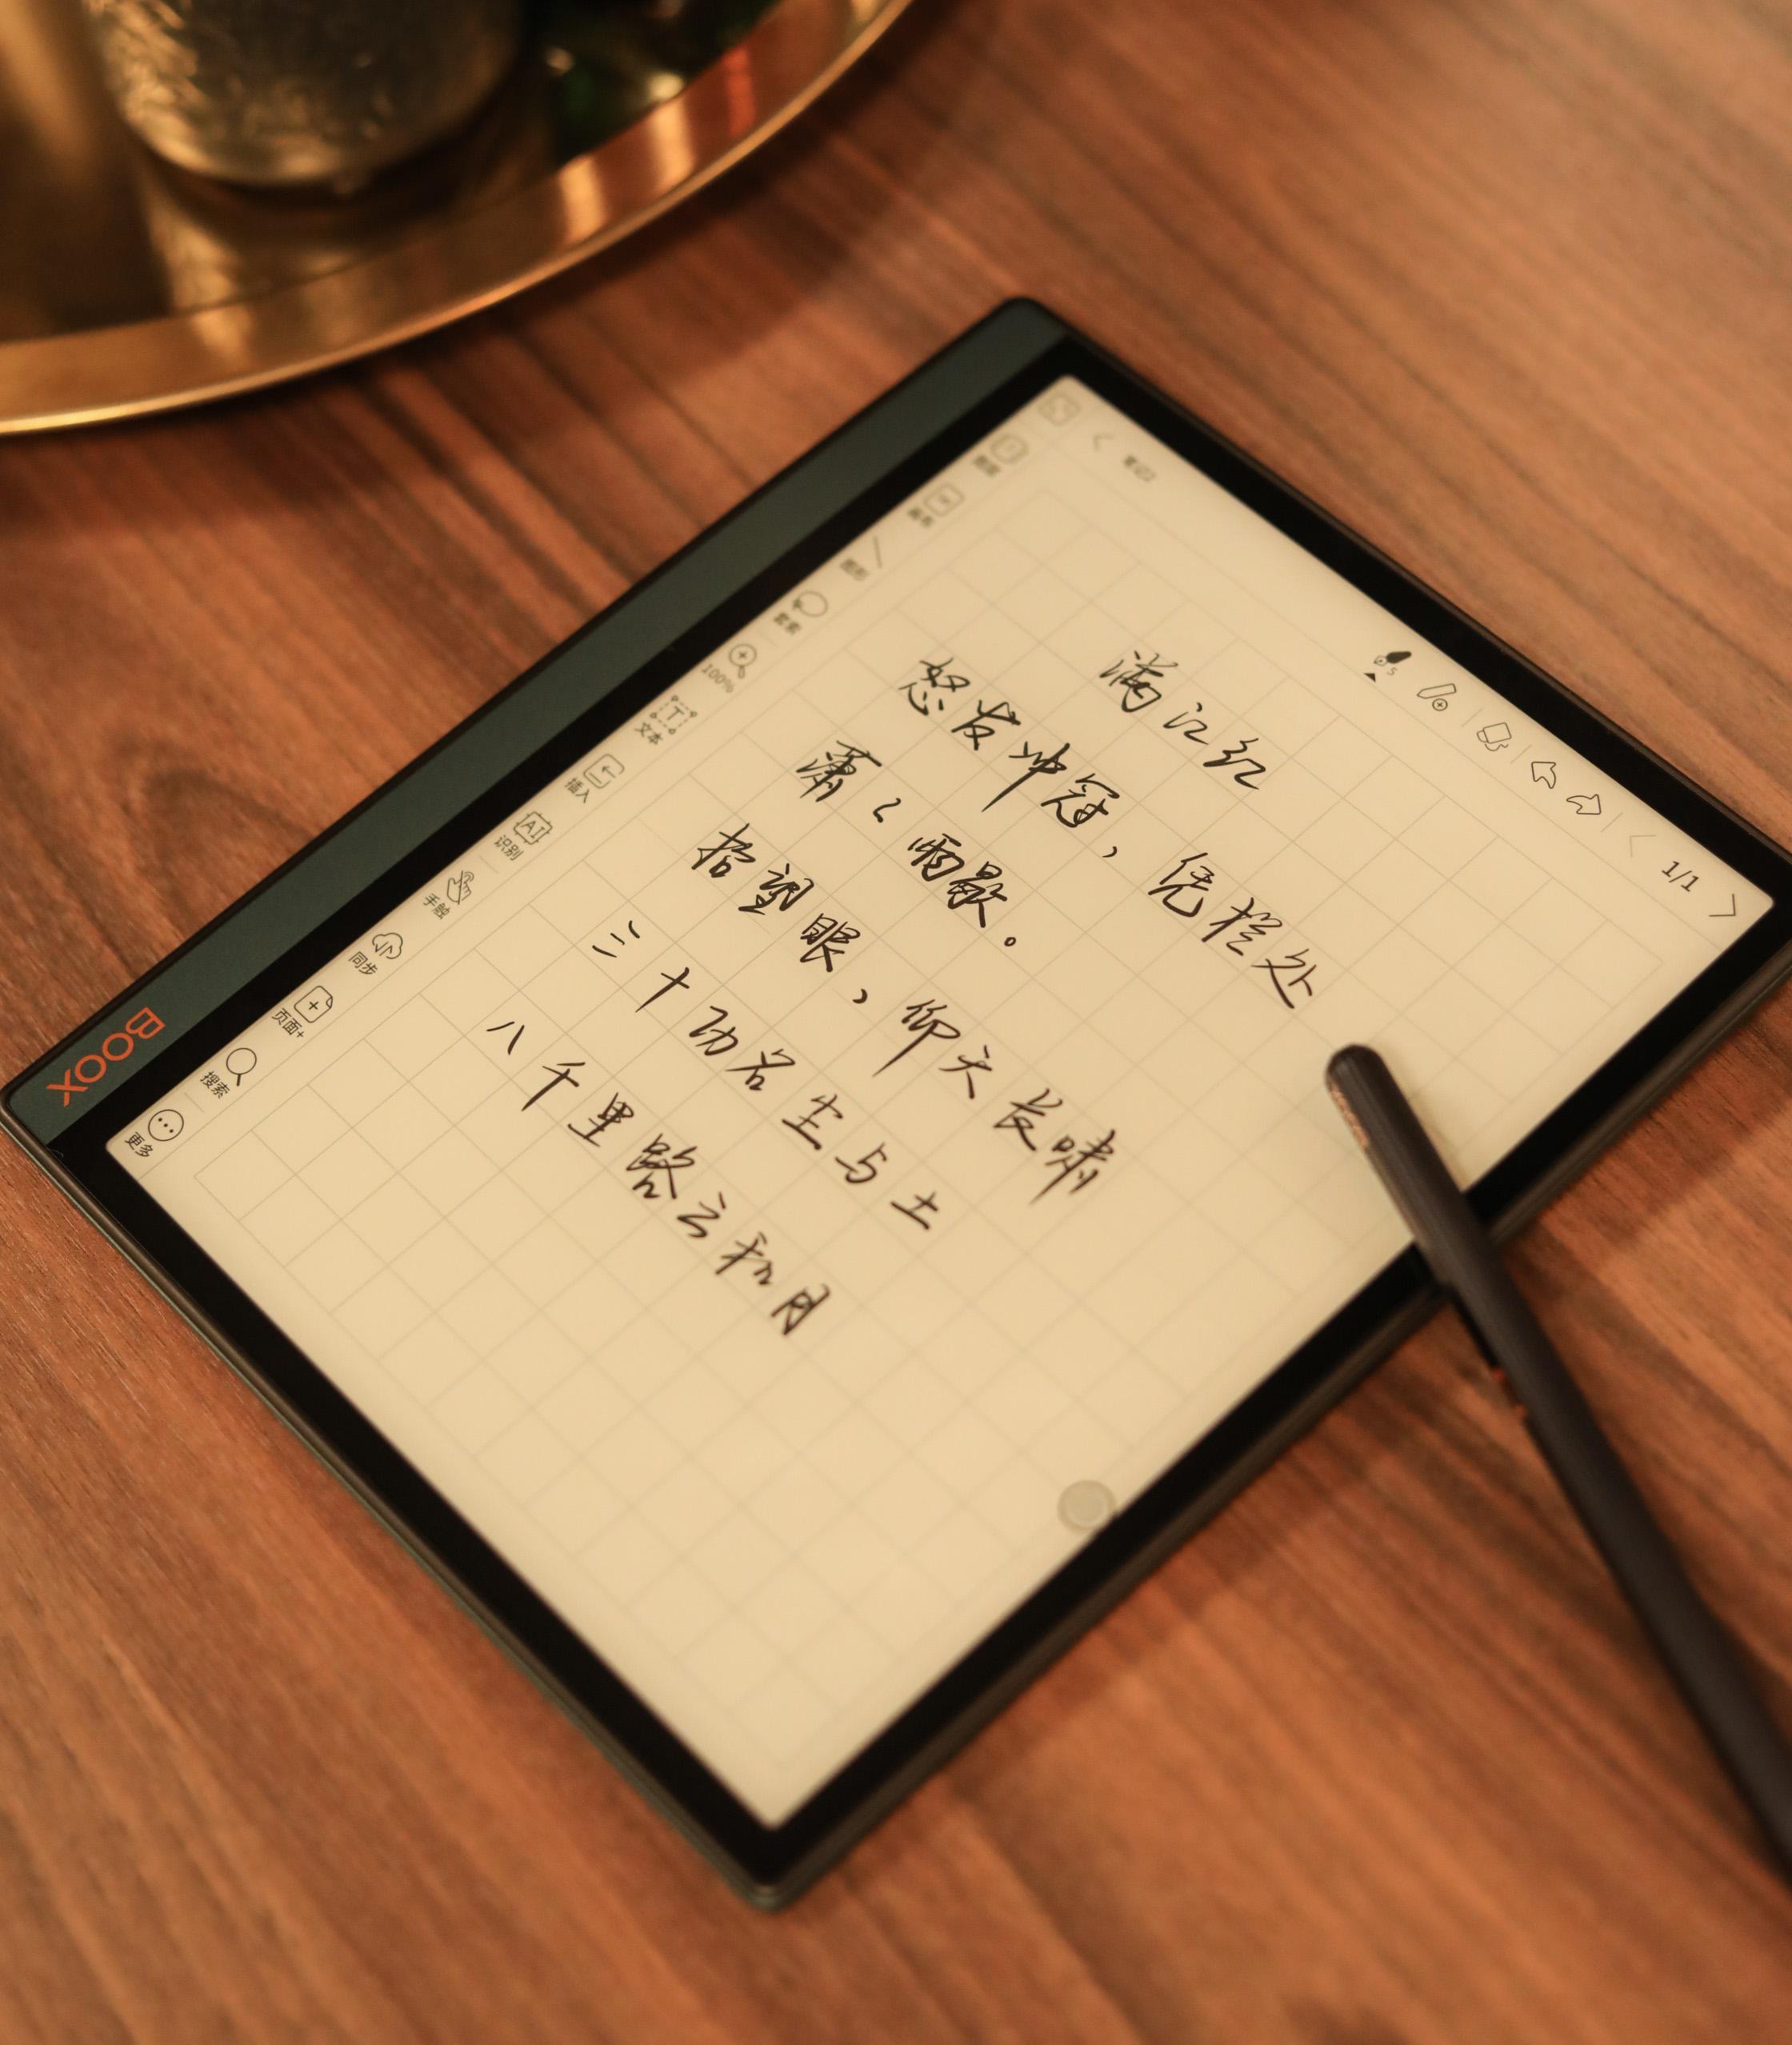 1/1
图形
套索
100%
文本
插入
AI
识别
手触
同步
页面+
搜索
更多
满江红
怒发冲冠，凭栏处
潇々雨歇。
抬望眼，仰天长啸
三十功名尘与土
八千里路云和月
BOOX